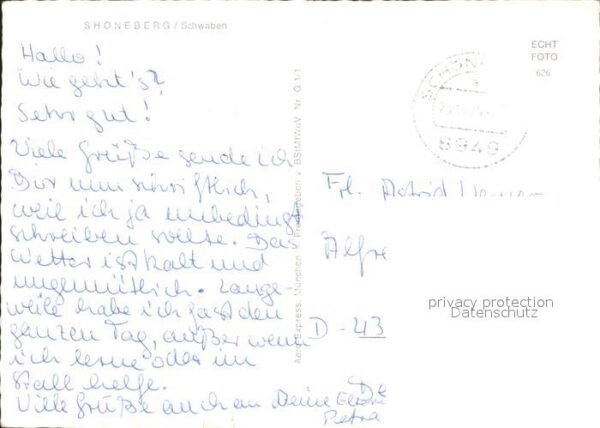 SHÖNEBERG / Schwaben
Hallo!
Wie geht's?
Sehr gut!
Viele Grüße sende ich
Dir nun schriftlich,
weil ich ja unbedingt
schreiben sollte. Das
Wetter ist kalt und
ungemütlich. Lange-
weile habe ich fast den
ganzen Tag, außer wenn
ich lerne oder im
Stall helfe.
Viele Grüße auch an Deine Eltern
Petra
Aero Express, München Freigegeben BStMfWuV Nr. G 1/1
ECHT
FOTO
626
8949
Frl. Astrid
Alfre
D - 43
privacy protection
Datenschutz